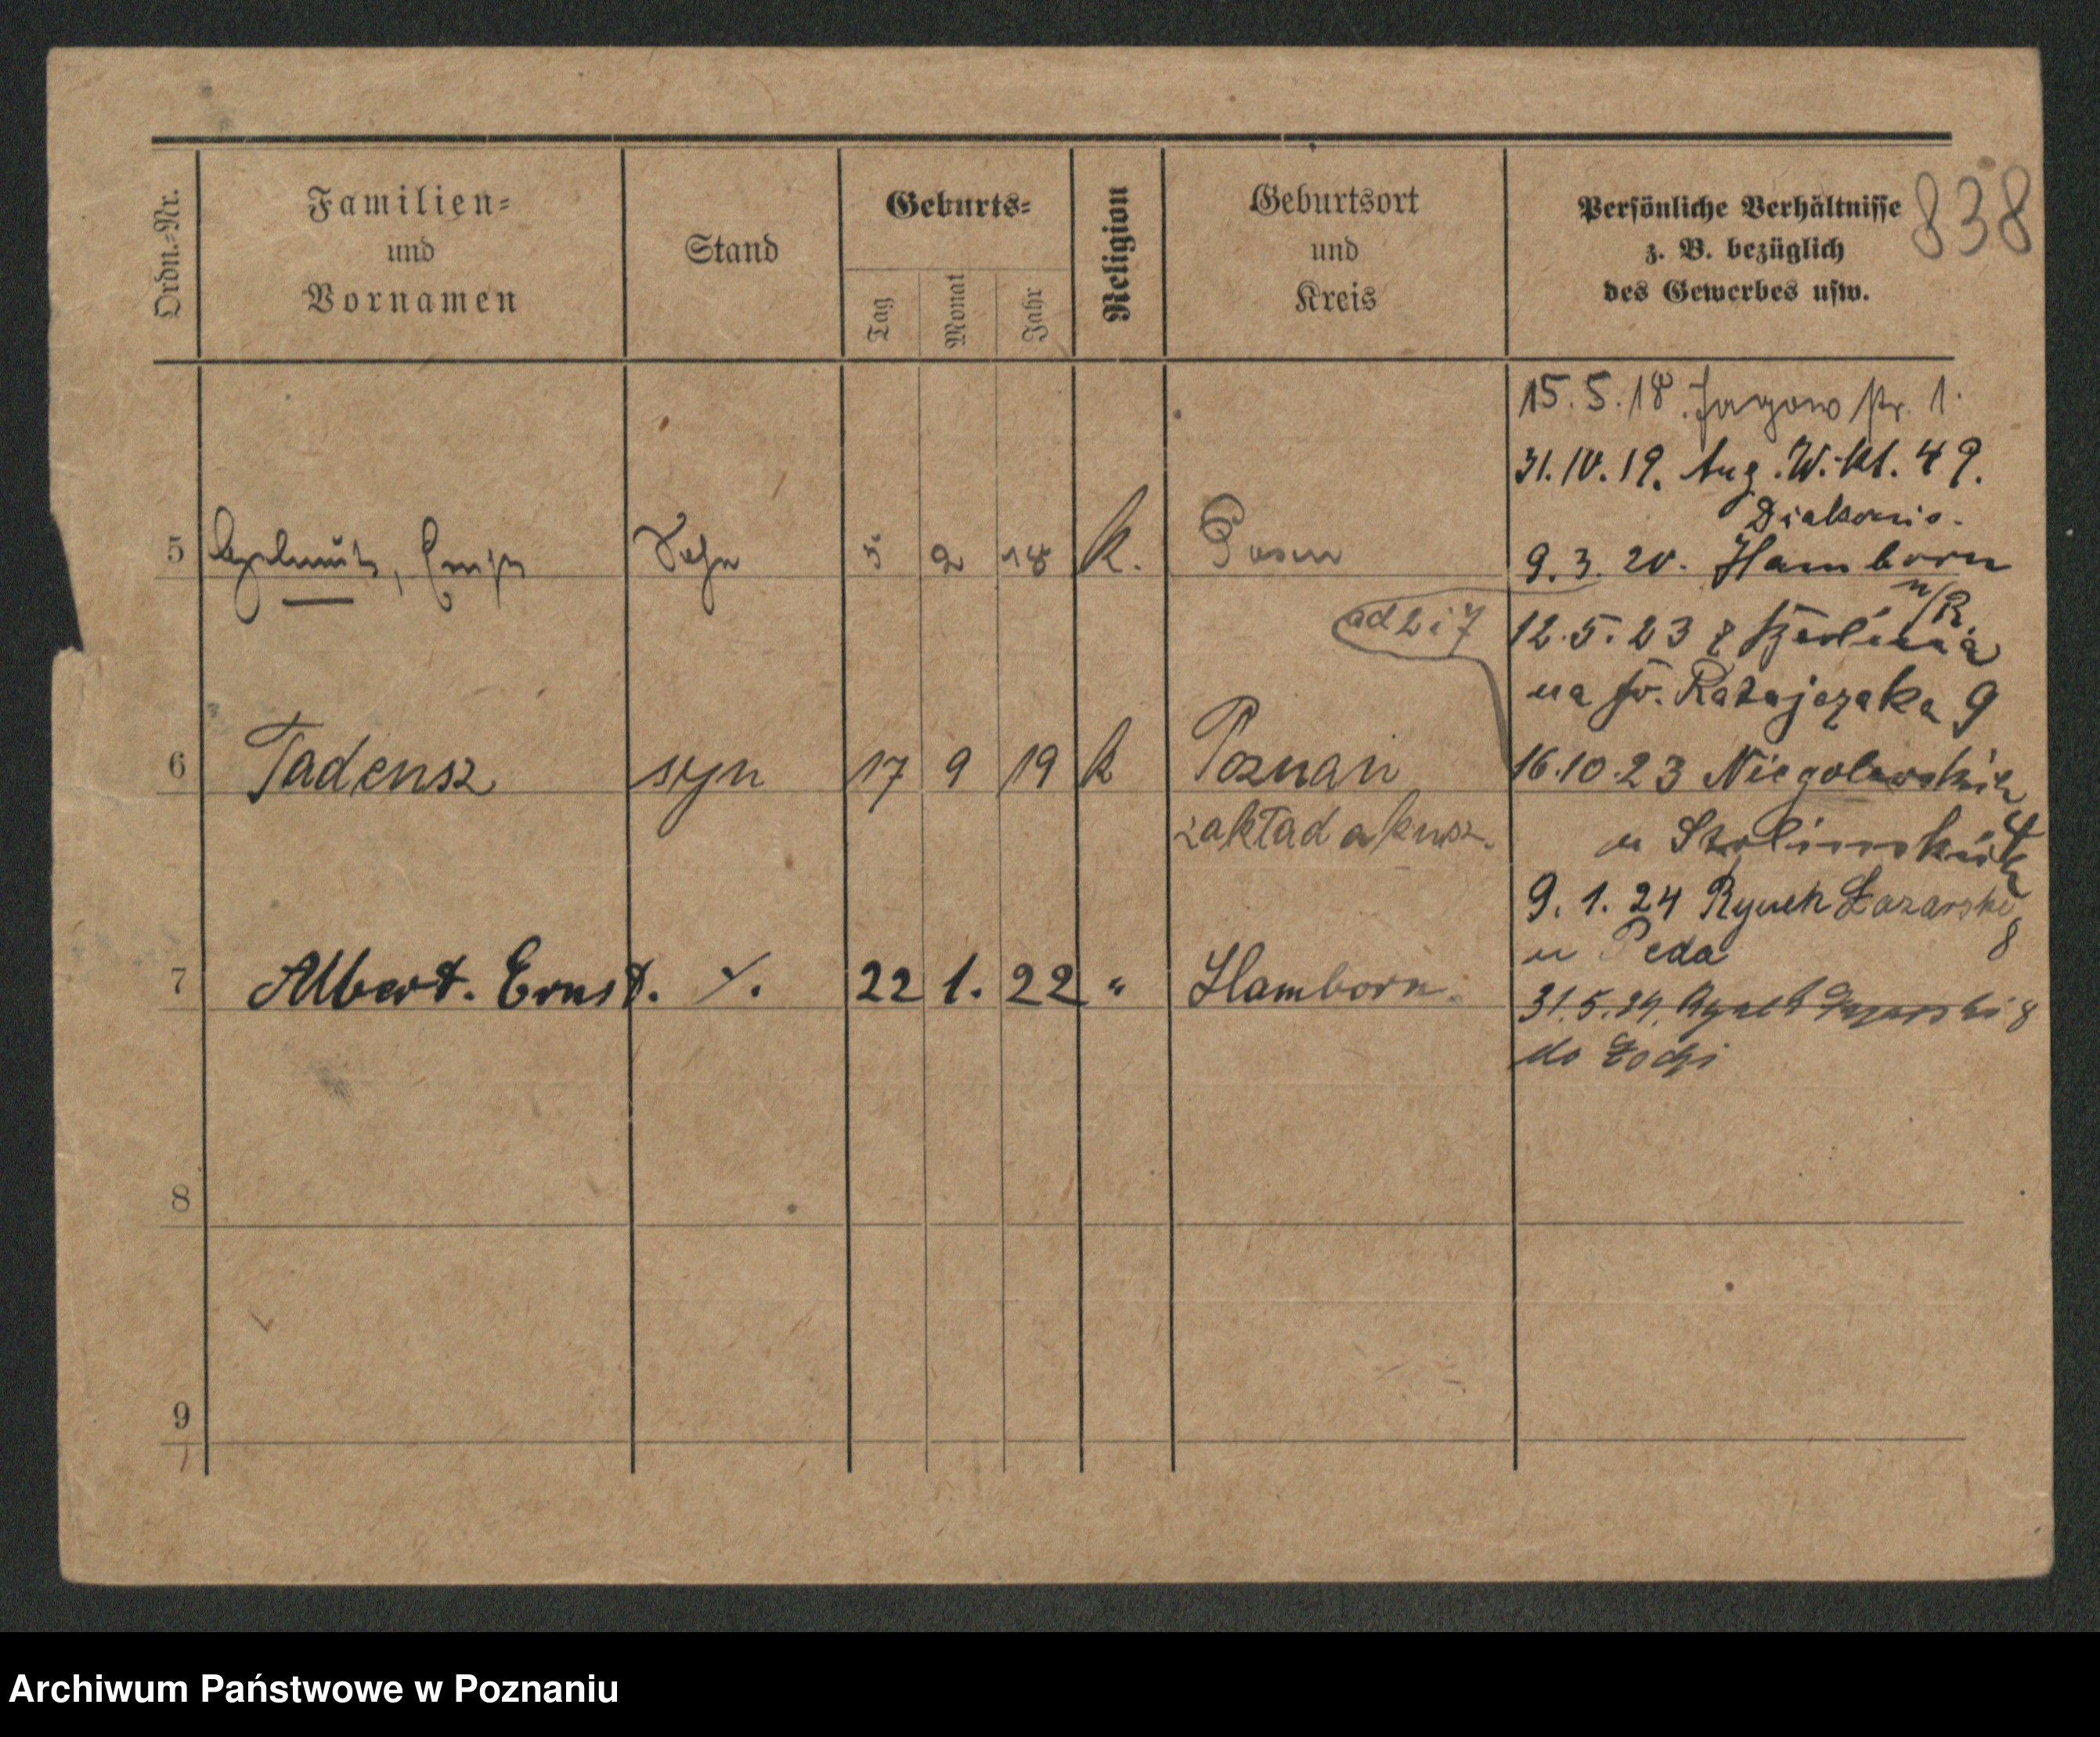 838
Ordn.-Nr.
Familien-
und
Vornamen
Stand
Geburts-
Tag
Monat
Jahr
Religion
Geburtsort
und
Kreis
Persönliche Verhältnisse
z. B. bezüglich
des Gewerbes usw.
15.5.18. Jagow str. 1.
31.10.19. Aug. W. 49.
Diakonis.
5 Helmuth, Sohn 5 2 18 k. Posen
9.3.20. Hamborn
a/R.
ad 2 i 7
12.5.23 z Berlina
na Ratajczaka 9
6 Tadeusz syn 17 9 19 k Poznań
zakład akusz.
16.10.23 Niegolewskich
u
9.1.24 Rynek Łazarski
8
u Peda
7 Albert. Ernst. ./. 22 1. 22 " Hamborn.
31.5.24. Rynek Łazarski 8
do Łodzi
8
9
Archiwum Państwowe w Poznaniu